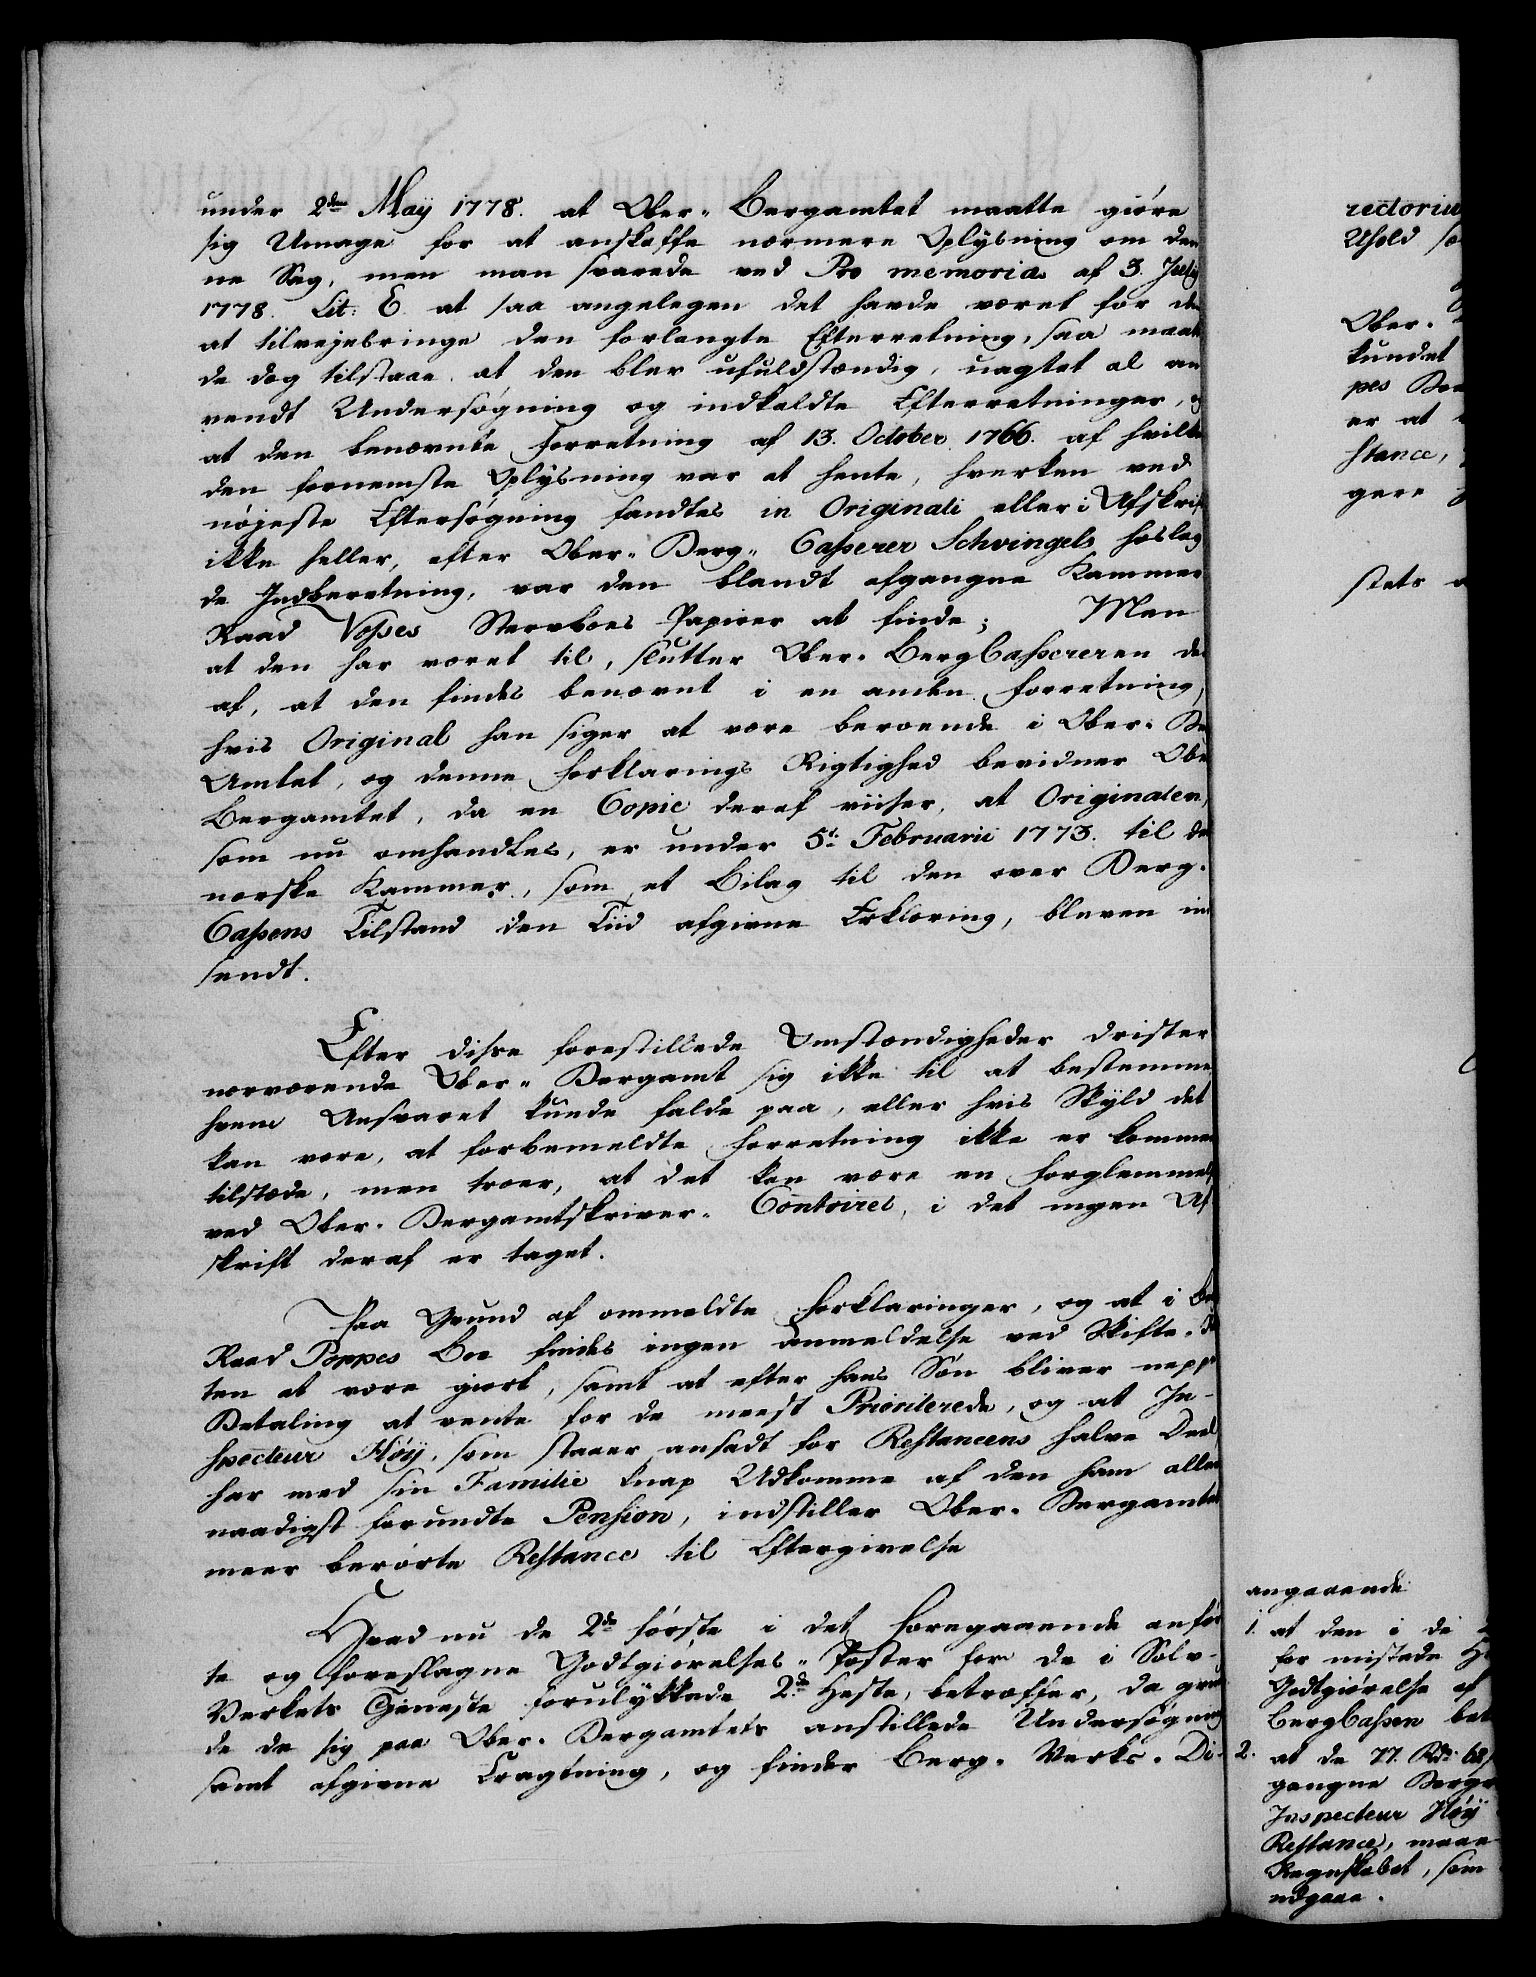 under 2den Maij 1778. at Ober-Bergamtet maatte giøre
sig Umage for at anskaffe nærmere Oplysning om den
ne Sag, men man svarede ved Pro memoria af 3. Julij
1778. Lit: E. at saa angelegen det havde været for det
at tilvejebringe den forlangte Efterretning, saa maat
de dog tilstaae at den blev ufuldstændig, uagtet al an
vendt Undersøgning og indkaldte Efterretninger, og
at den benævnte Forretning af 13. October 1766. af hvilke
den fornemste Oplysning var at hente, hverken ved
nøjeste Eftersøgning fandtes in Originali eller i Afskrift
ikke heller, efter Ober-Berg-Casserer Schvingels hoslag
de Indberetning, var den blandt afgangne Kammer
Raad Vosses Sterboes Papirer at finde; Men
at den har været til, slutter Ober-BergCassereren der
af, at den findes benævnt i en anden Forretning,
hvis Original han siger at være beroende i Ober-Be
Amtet, og denne Forklarings Rigtighed bevidner Ober
Bergamtet, da en Copie deraf viiser, at Originalen,
som nu omhandles, er under 5t. Februarii 1773. til det
norske Kammer, som et Bilag til den over Berg-
Cassens Tilstand den Tiid afgivne Erklæring, bleven ind
sendt.
Efter disse forestillede Omstændigheder drister
nærværende Ober-Bergamt sig ikke til at bestemme
hvem Ansvaret kunde falde paa, eller hvis Skyld det
kan være, at forbemeldte Forretning ikke er kommen
tilstæde, men troer, at det kan være en Forglemmelse
ved Ober-Bergamtskriver-Contoiret, i det ingen Af
skrift deraf er taget.
Paa Grund af ommeldte Forklaringer, og at i Berg
Raad Poppes Boe findes ingen Anmeldelse ved Skifte-Re
ten at være giort, samt at efter hans Søn bliver neppe
Betaling at vente for de meest Prioriterede, og at In-
specteur Høÿ, som staaer ansadt for Restancens halve Deel,
har med sin Familie knap Udkomme af den ham aller
naadigst forundte Pension, indstiller Ober-Bergamtet
meer berørte Restance til Eftergivelse
Hvad nu de 2de første i det Foregaaende anfør
te og foreslagne Godtgiørelses-Poster for de i Sølv-
Verkets Tjeneste forulykkede 2de Heste, betræffer, da grun
de de sig paa Ober-Bergamtets anstillede Undersøgning
samt afgivne Tragtning, og finder Berg-Verks-Di-
rectoriu
Uhold sa
Ober-
kundet
pes Boe
er at
stance,
gere
stets
angaaende
1. at den i de
for mistede He
Godtgiørelse af
BergCassen bet
2. at de 77. Rdr. 68
gangne Bergr
Inspecteur Høÿ
Restance, maae
Regnskabet, som
udgaae.